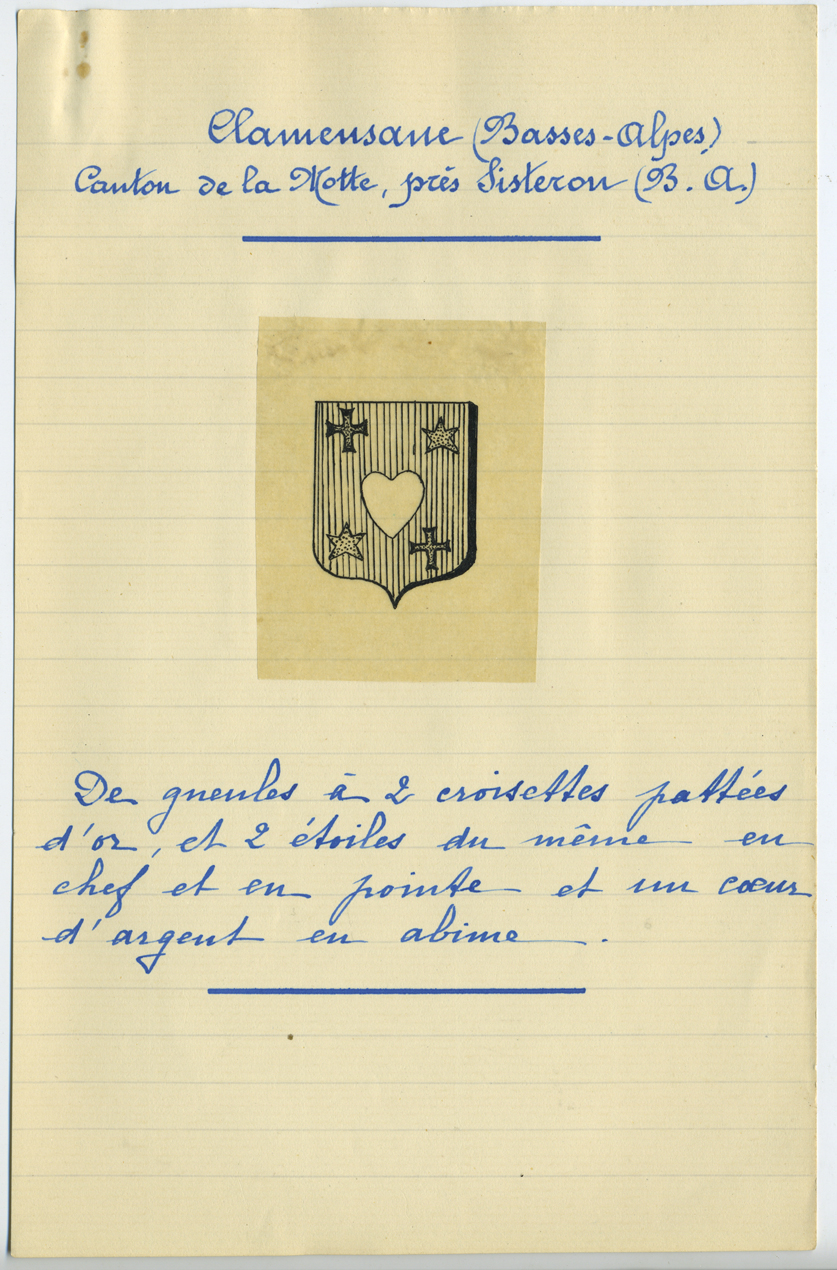 Clamensane (Basses-Alpes)
Canton de la Motte, près Sisteron (B. A.)
De gueules à 2 croisettes pattées
d'or, et 2 étoiles du même en
chef et en pointe et un cœur
d'argent en abime.